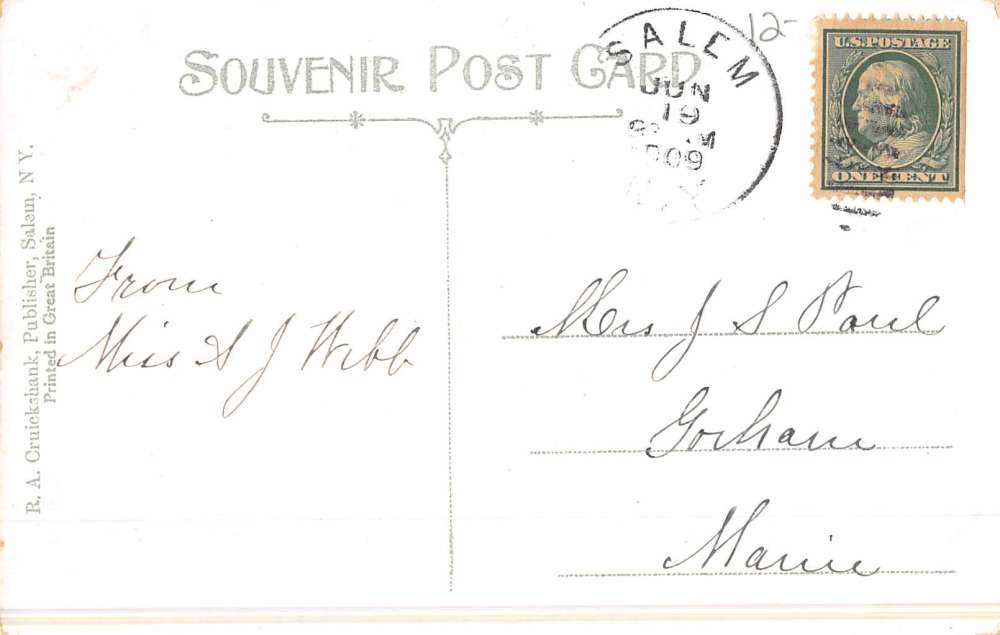 SOUVENIR POST CARD
12-
SALEM
JUN
19
1909
N.Y.
U.S. POSTAGE
ONE CENT
R. A. Cruickshank, Publisher, Salem, N Y.
Printed in Great Britain
From
Miss S J Webb
Mrs J S Paul
Gorham
Maine